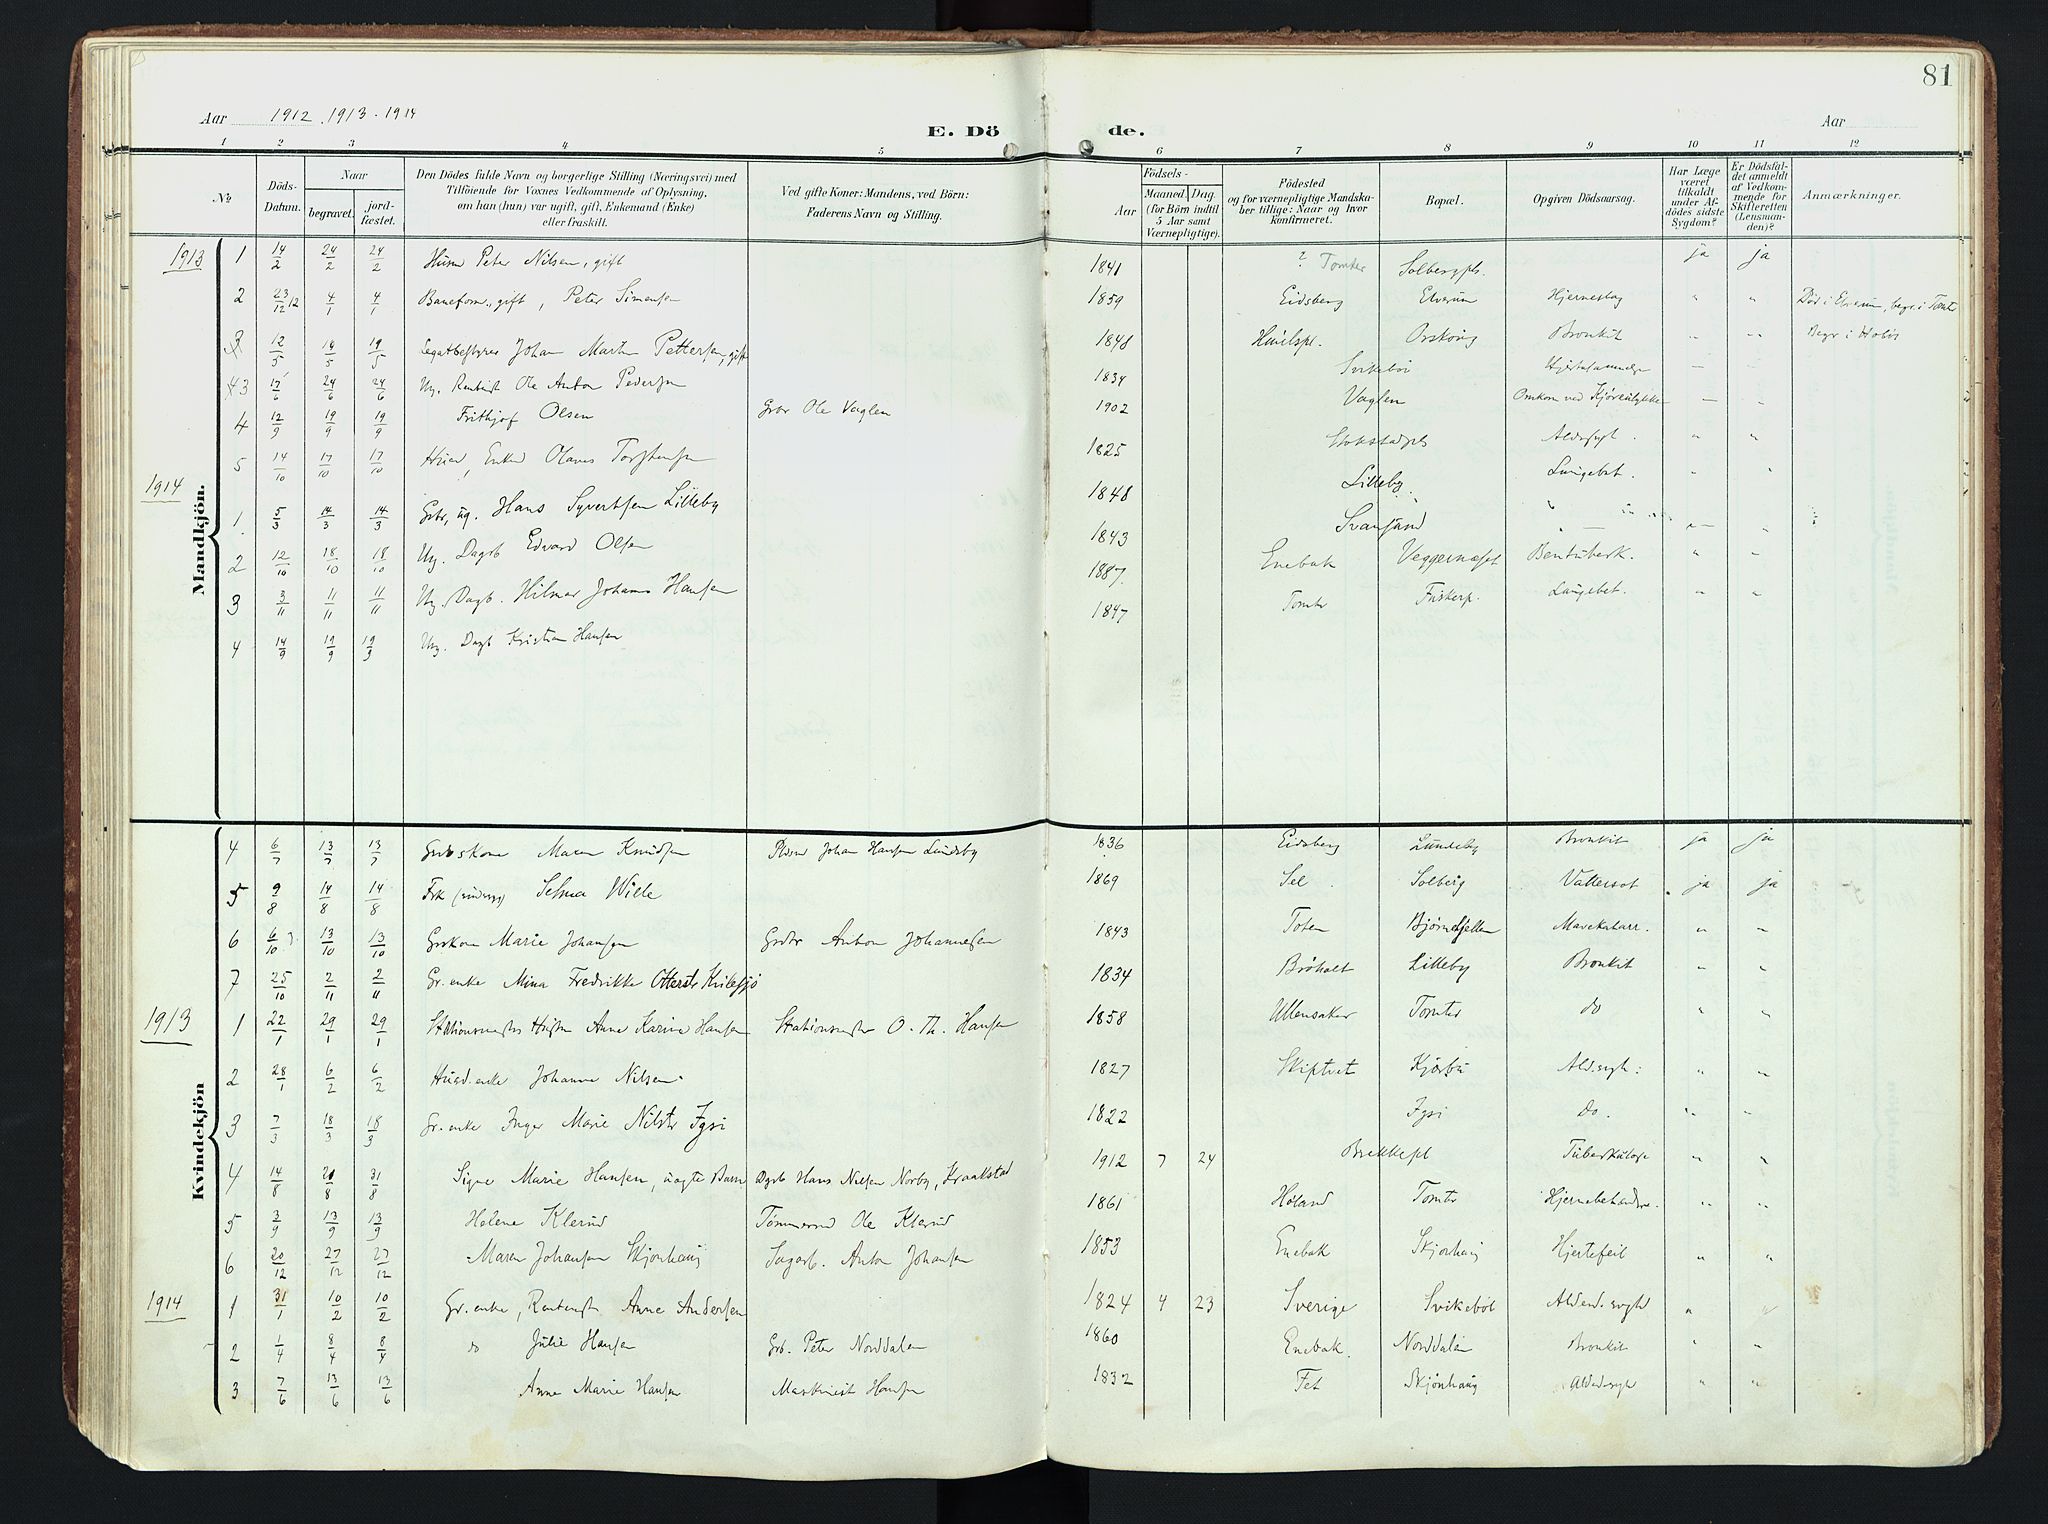 81
Aar 1912. 1913. 1914
E. Dö de.
Aar
1 2 3 4 5 6 7 8 9 10 11 12
No
Döds-Datum.
Naar
begravet.
jord-fæstet.
Den Dödes fulde Navn og borgerlige Stilling (Næringsvei) med Tilföiende for Voxnes Vedkommende af Oplysning, om han (hun) var ugift, gift, Enkemand (Enke) eller fraskilt.
Ved gifte Koner: Mandens, ved Börn: Faderens Navn og Stilling.
Födsels-
Aar
Maaned. Dag.
(for Börn indtil 5 Aar samt Værnepligtige).
Födested og for værnepligtige Mandskaber tillige: Naar og hvor Konfirmeret.
Bopæl.
Opgiven Dödsaarsag.
Har Læge været tilkaldt under Afdödes sidste Sygdom?
Er Dödsfaldet anmeldt af Vedkommende for Skifteretten (Lensmanden)?
Anmærkninger.
Mandkjön.
1913 1 14/2 24/2 24/2 Husm Peter Nilsen, gift 1841 ? Tomter Solbergpls. ja ja
2 23/12 12 4/1 4/1 Baneform., gift, Peter Simensen 1859 Eidsberg Elverum Hjerneslag " " Död i Elverum, begr. i Tomter
3 12/5 18/5 19/5 Legatbestyrer Johan Martin Pettersen, gift 1848 Orskoug Bronkit " " Begr i Hobøl
3 17/6 24/6 24/6 Ug. Rentenist Ole Anton Pedersen 1834 Svikebøl
4 12/9 19/9 19/9 Frithjof Olsen Gbr Ole Vaglen 1902 Vaglen Omkom ved Kjøreulykke — "
5 14/10 17/10 17/10 Enkem Olaves Torstensen 1825 Stokstadpls Aldersygd. " "
1914 1. 5/3 14/3 14/3 Gbr, ug. Hans Syvertsen Lilleby 1848 Lilleby. Lungebet. " "
2 12/10 18/10 18/10 Ug. Dagb Edvard Olsen 1843 Svansund " — "
3 3/11 11/11 11/11 Ug. Dagb. Hilmar Johans Hansen 1887. Enebak Veggernæset " "
4 14/9 19/9 19/9 Ug. Dagb Kristian Hansen 1847 Tomter Lungebet. " "
Kvindekjön
4 6/7 13/7 13/7 Gbrskone Maren Knudsen Plsm Johan Hansen Lundeby 1836 Eidsberg Lundeby Bronkit ja ja
5 9/8 14/8 14/8 Frk Selma Wille 1869 Sel. Solberg Vattersot ja ja
6 6/10 13/10 13/10 Grkone Marie Johansen Grdbr Anton Johannesen 1843 Toten Bjørnefjellen Mavekatarr. " "
7 25/10 2/11 2/11 Gr.enke Mina Fredrikke Ottersdtr Kvilesjø 1834 Brøholt Lilleby Bronkit " "
1913 1 22/1 29/1 29/1 Stationsmesters Hustru Anne Karine Hansen Stationsmester O. Th. Hansen 1858 Ullensaker Tomter do " "
2 28/1 6/2 6/2 Husm.enke Johanne Nilsen 1827 Skiptvet Kjærbu Ald.sygd: " "
3 7/3 18/3 18/3 Gr.enke Inger Marie Nilsdtr Igsi 1822 Igsi do. " "
4 14/8 21/8 31/8 Signe Marie Hansen, uægte Barn Dagb Hans Nilsen Norby, Kraakstad 1912 7 24 Brekkepl Tuberkulose " "
5 3/9 13/9 13/9 Helene Klerud Tømmerm Ole Klerud 1861 Høland Tomter " "
6 20/12 27/12 27/12 Maren Johansen Skjønhaug Sagarb. Anton Johansen 1853 Enebak Skjønhaug Hjertefeil " "
1914 1 31/1 10/2 10/2 Gr.enke, Rentenist Anne Andersen 1824 4 23 Sverige Svikebøl Alderd.sygd " "
2 1/4 8/4 8/4 do Julie Hansen Grb. Peter Norddalen 1860 Enebak. Norddalen Bronkit " "
3 7/6 13/6 13/6 Anne Marie Hansen Martinist Hansen 1832 Fet Skjønhaug Alderdsygd " "